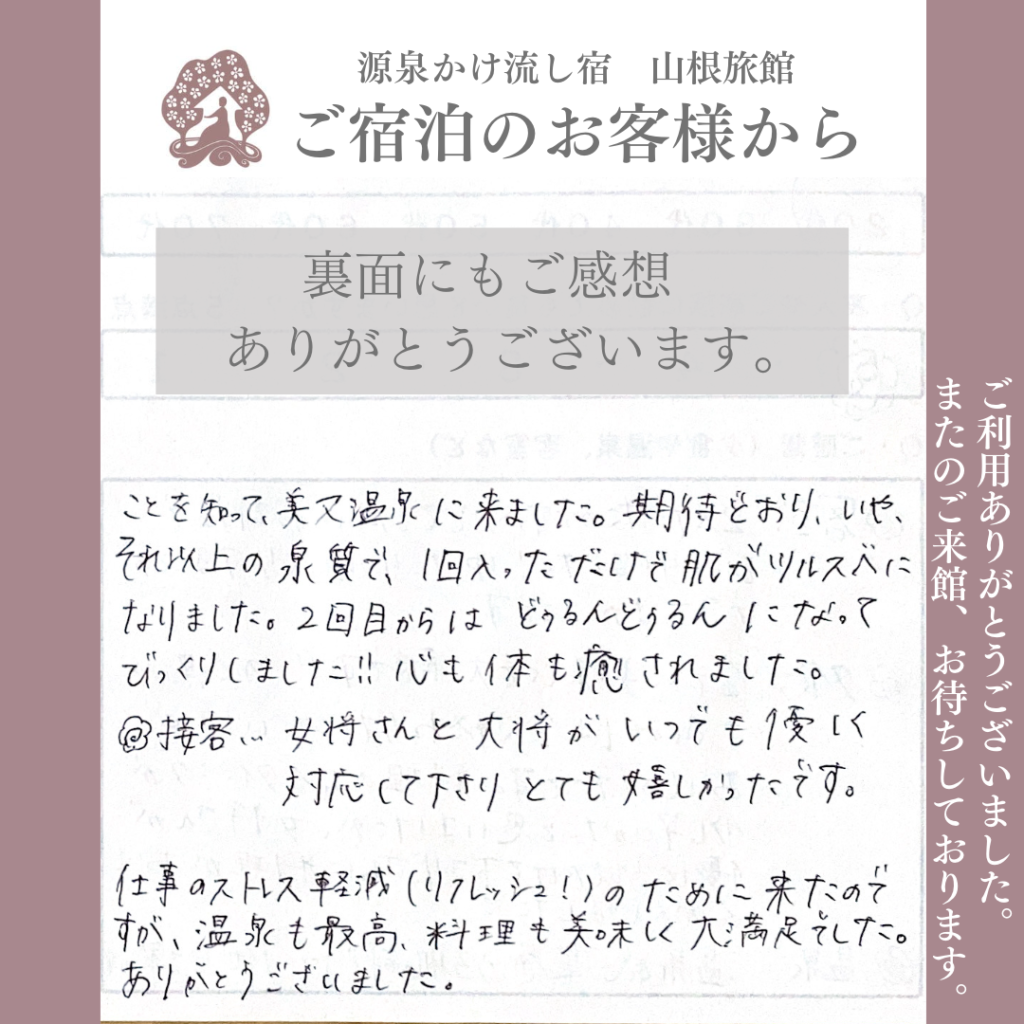 源泉かけ流し宿　山根旅館
ご宿泊のお客様から
裏面にもご感想
ありがとうございます。
ことを知って、美又温泉に来ました。期待どおり、いや、
それ以上の泉質で、1回入っただけで肌がツルスベに
なりました。2回目からはどぅるんどぅるんになって
びっくりしました!!心も体も癒されました。
接客… 女将さんと大将がいつでも優しく
対応して下さりとても嬉しかったです。
仕事のストレス軽減(リフレッシュ!)のために来たので
すが、温泉も最高、料理も美味しく大満足でした。
ありがとうございました。
ご利用ありがとうございました。
またのご来館、お待ちしております。